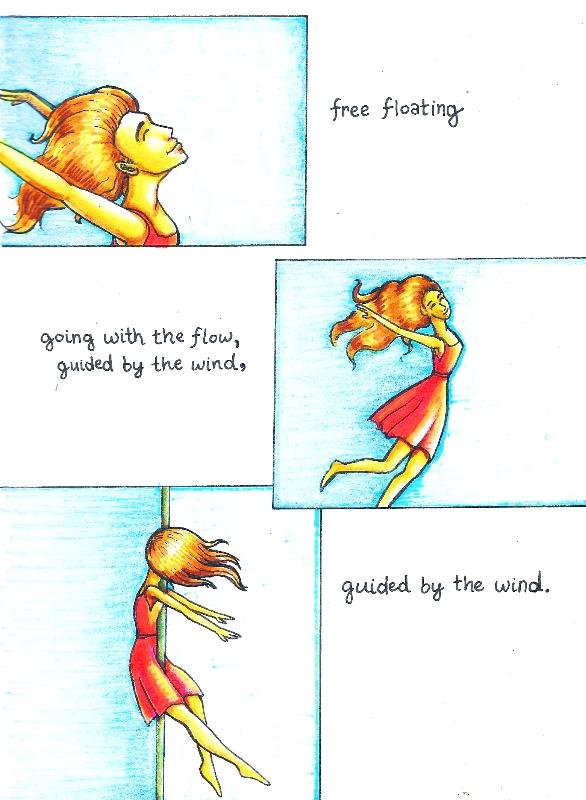 free floating
going with the flow,
guided by the wind,
guided by the wind.